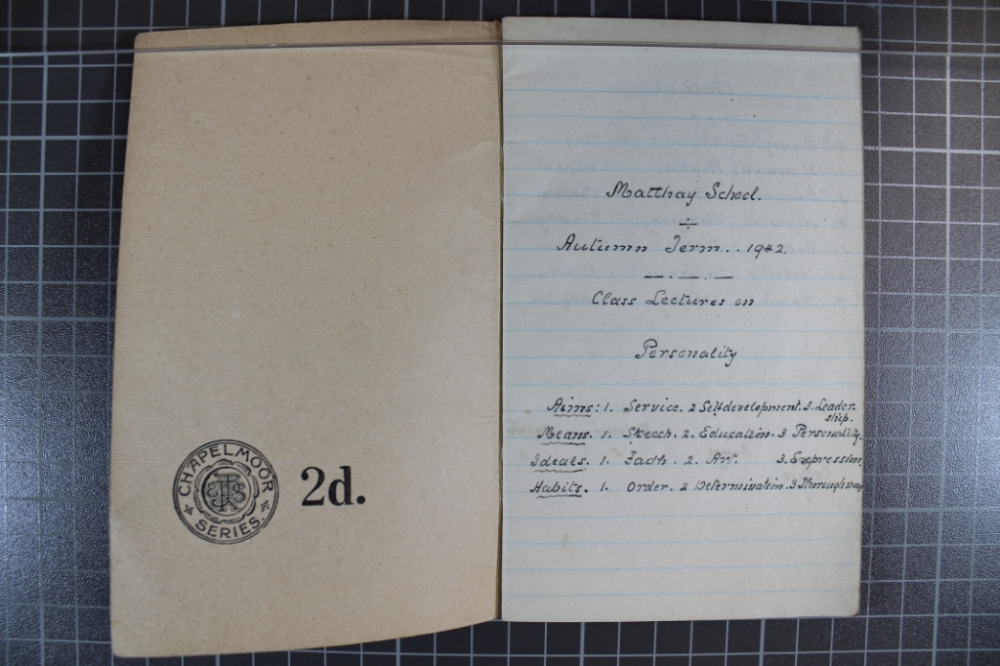 CHAPELMOOR
SERIES
2d.
Matthay School.
Autumn Term.. 1942.
Class Lectures on
Personality
Aims: 1. Service. 2 Selfdevelopment. 3. Leader
ship.
Means. 1. Speech. 2. Education. 3 Personality.
Ideals. 1. Faith. 2. Art. 3. Expression
Habits. 1. Order. 2 Determination. 3